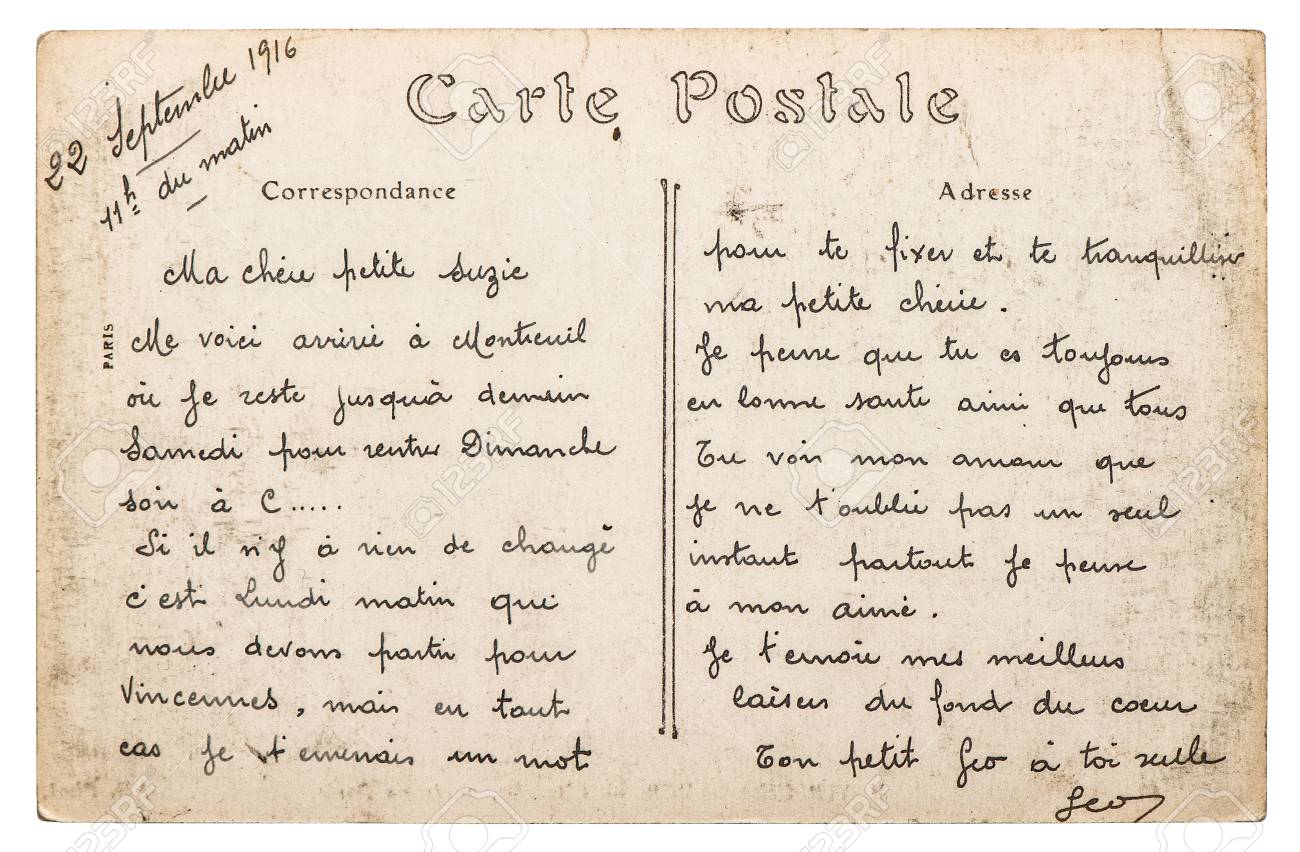 22 Septembre 1916
11h du matin
Carte Postale
Correspondance
Ma chère petite Suzie
PARIS
Me voici arrivé à Montreuil
où je reste jusqu'à demain
Samedi pour rentrer Dimanche
soir à C.....
Si il n'y à rien de changé
c'est Lundi matin que
nous devons partir pour
Vincennes, mais en tout
cas je t'enverrais un mot
Adresse
pour te fixer et te tranquilliser
ma petite chérie.
Je pense que tu es toujours
en bonne santé ainsi que tous
Tu vois mon amour que
je ne t'oublie pas un seul
instant partout je pense
à mon aimé.
Je t'envoie mes meilleurs
baisers du fond du coeur
Ton petit Geo à toi seule
Geo
123RF